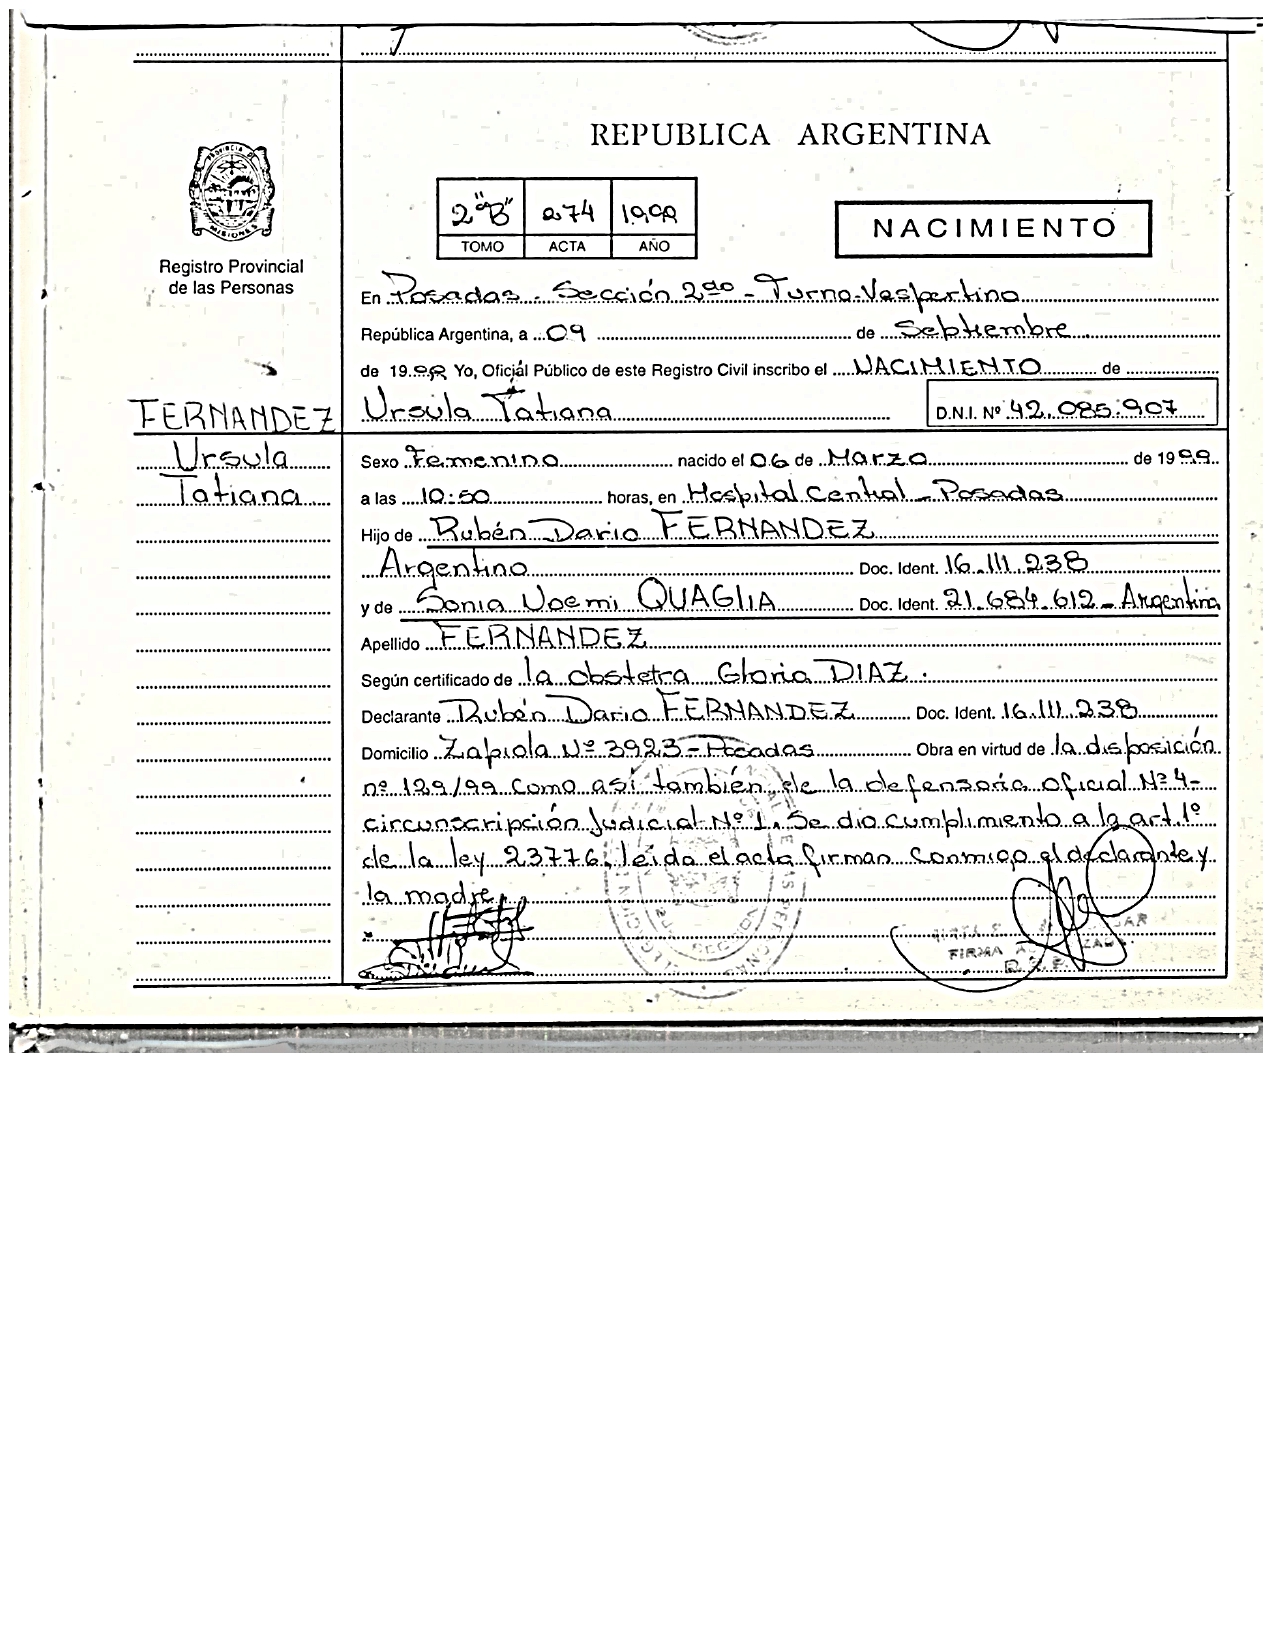 REPUBLICA ARGENTINA
PROVINCIA DE MISIONES
Registro Provincial
de las Personas
2º"B" 274 1999
TOMO ACTA AÑO
NACIMIENTO
En Posadas - Sección 2da - Turno Vespertino
República Argentina, a 09 de Septiembre
de 1999 Yo, Oficial Público de este Registro Civil inscribo el NACIMIENTO de
FERNANDEZ
Ursula
Tatiana
Ursula Tatiana D.N.I. Nº 42.085.907
Sexo Femenino nacido el 06 de Marzo de 1999
a las 10:50 horas, en Hospital Central - Posadas
Hijo de Rubén Dario FERNANDEZ
Argentino Doc. Ident. 16.111.238
y de Sonia Noemi QUAGLIA Doc. Ident. 21.684.612 - Argentina
Apellido FERNANDEZ
Según certificado de la obstetra Gloria DIAZ.
Declarante Rubén Dario FERNANDEZ Doc. Ident. 16.111.238
Domicilio Zapiola Nº 3923 - Posadas Obra en virtud de la disposición
nº 129/99 como así también de la defensoría oficial Nº 4-
circunscripción Judicial Nº 1. Se dio cumplimiento a la art. 1º
de la ley 23776, leída el acta firman conmigo el declarante y
la madre
FIRMA